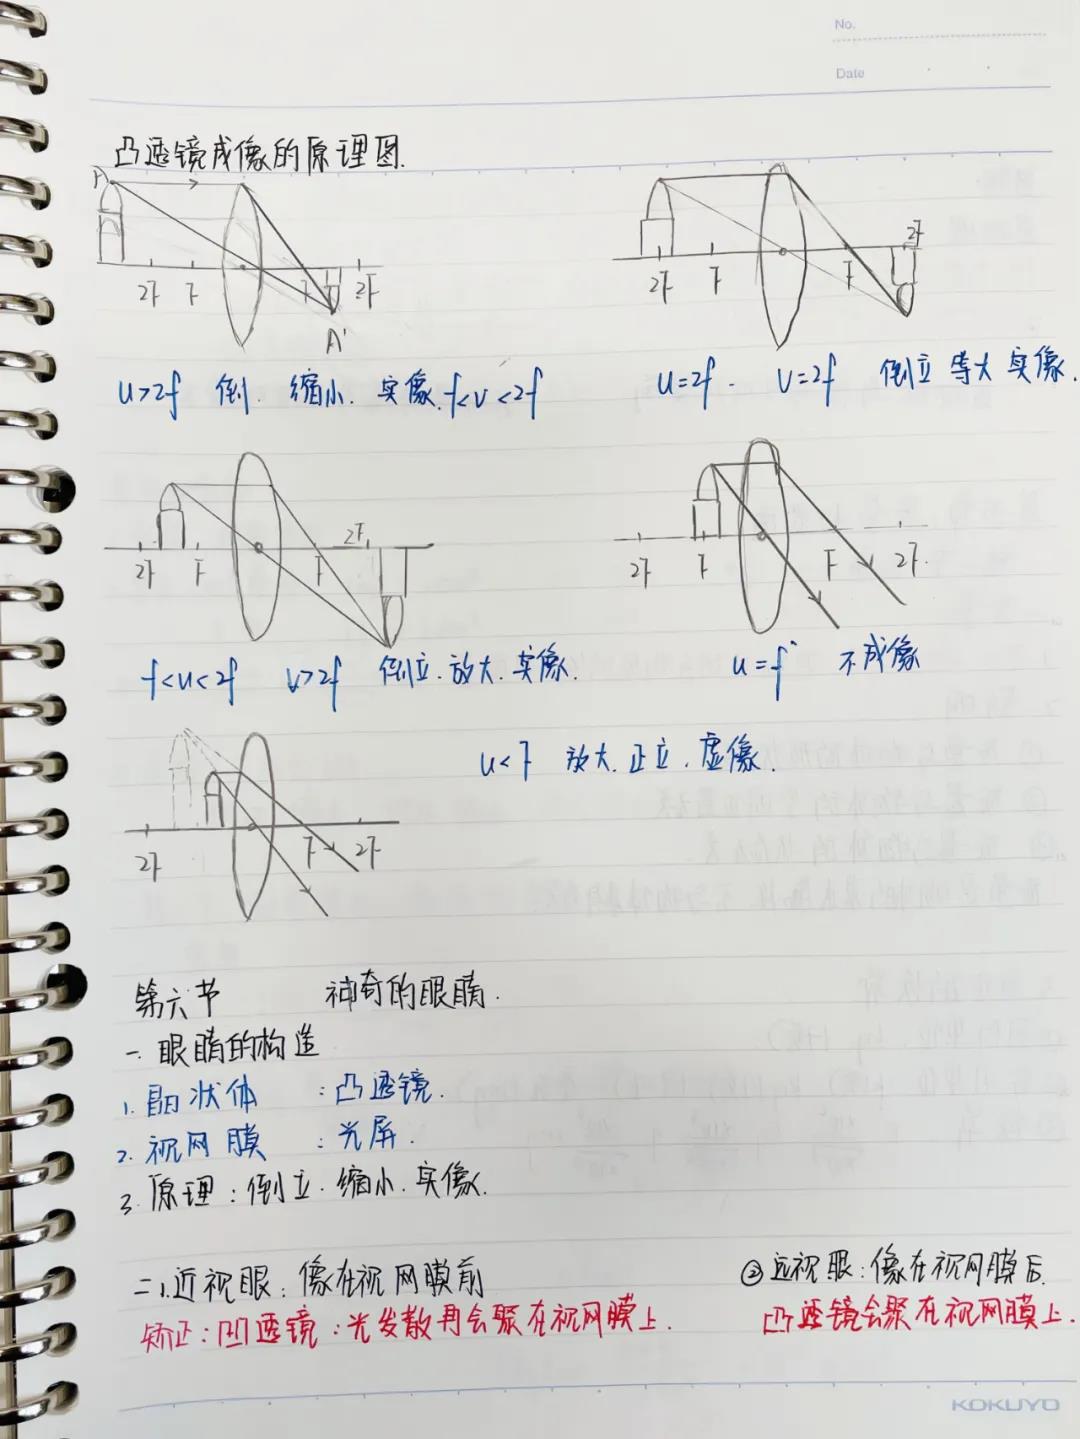 No.
Date
凸透镜成像的原理图.
A
2F F F 2F
A'
2F F F 2F
u>2f 倒. 缩小. 实像. f<v<2f
u=2f - v=2f 倒立 等大 实像.
2F F F 2F
2F F F 2F.
f<u<2f v>2f 倒立. 放大. 实像.
u=f 不成像
u<F 放大. 正立. 虚像.
2F F 2F
第六节 神奇的眼睛.
一. 眼睛的构造
1. 晶状体 : 凸透镜.
2. 视网膜 : 光屏.
3. 原理: 倒立. 缩小. 实像.
二 1. 近视眼: 像在视网膜前
②远视眼: 像在视网膜后.
矫正: 凹透镜: 光发散再会聚在视网膜上.
凸透镜会聚在视网膜上.
KOKUYO